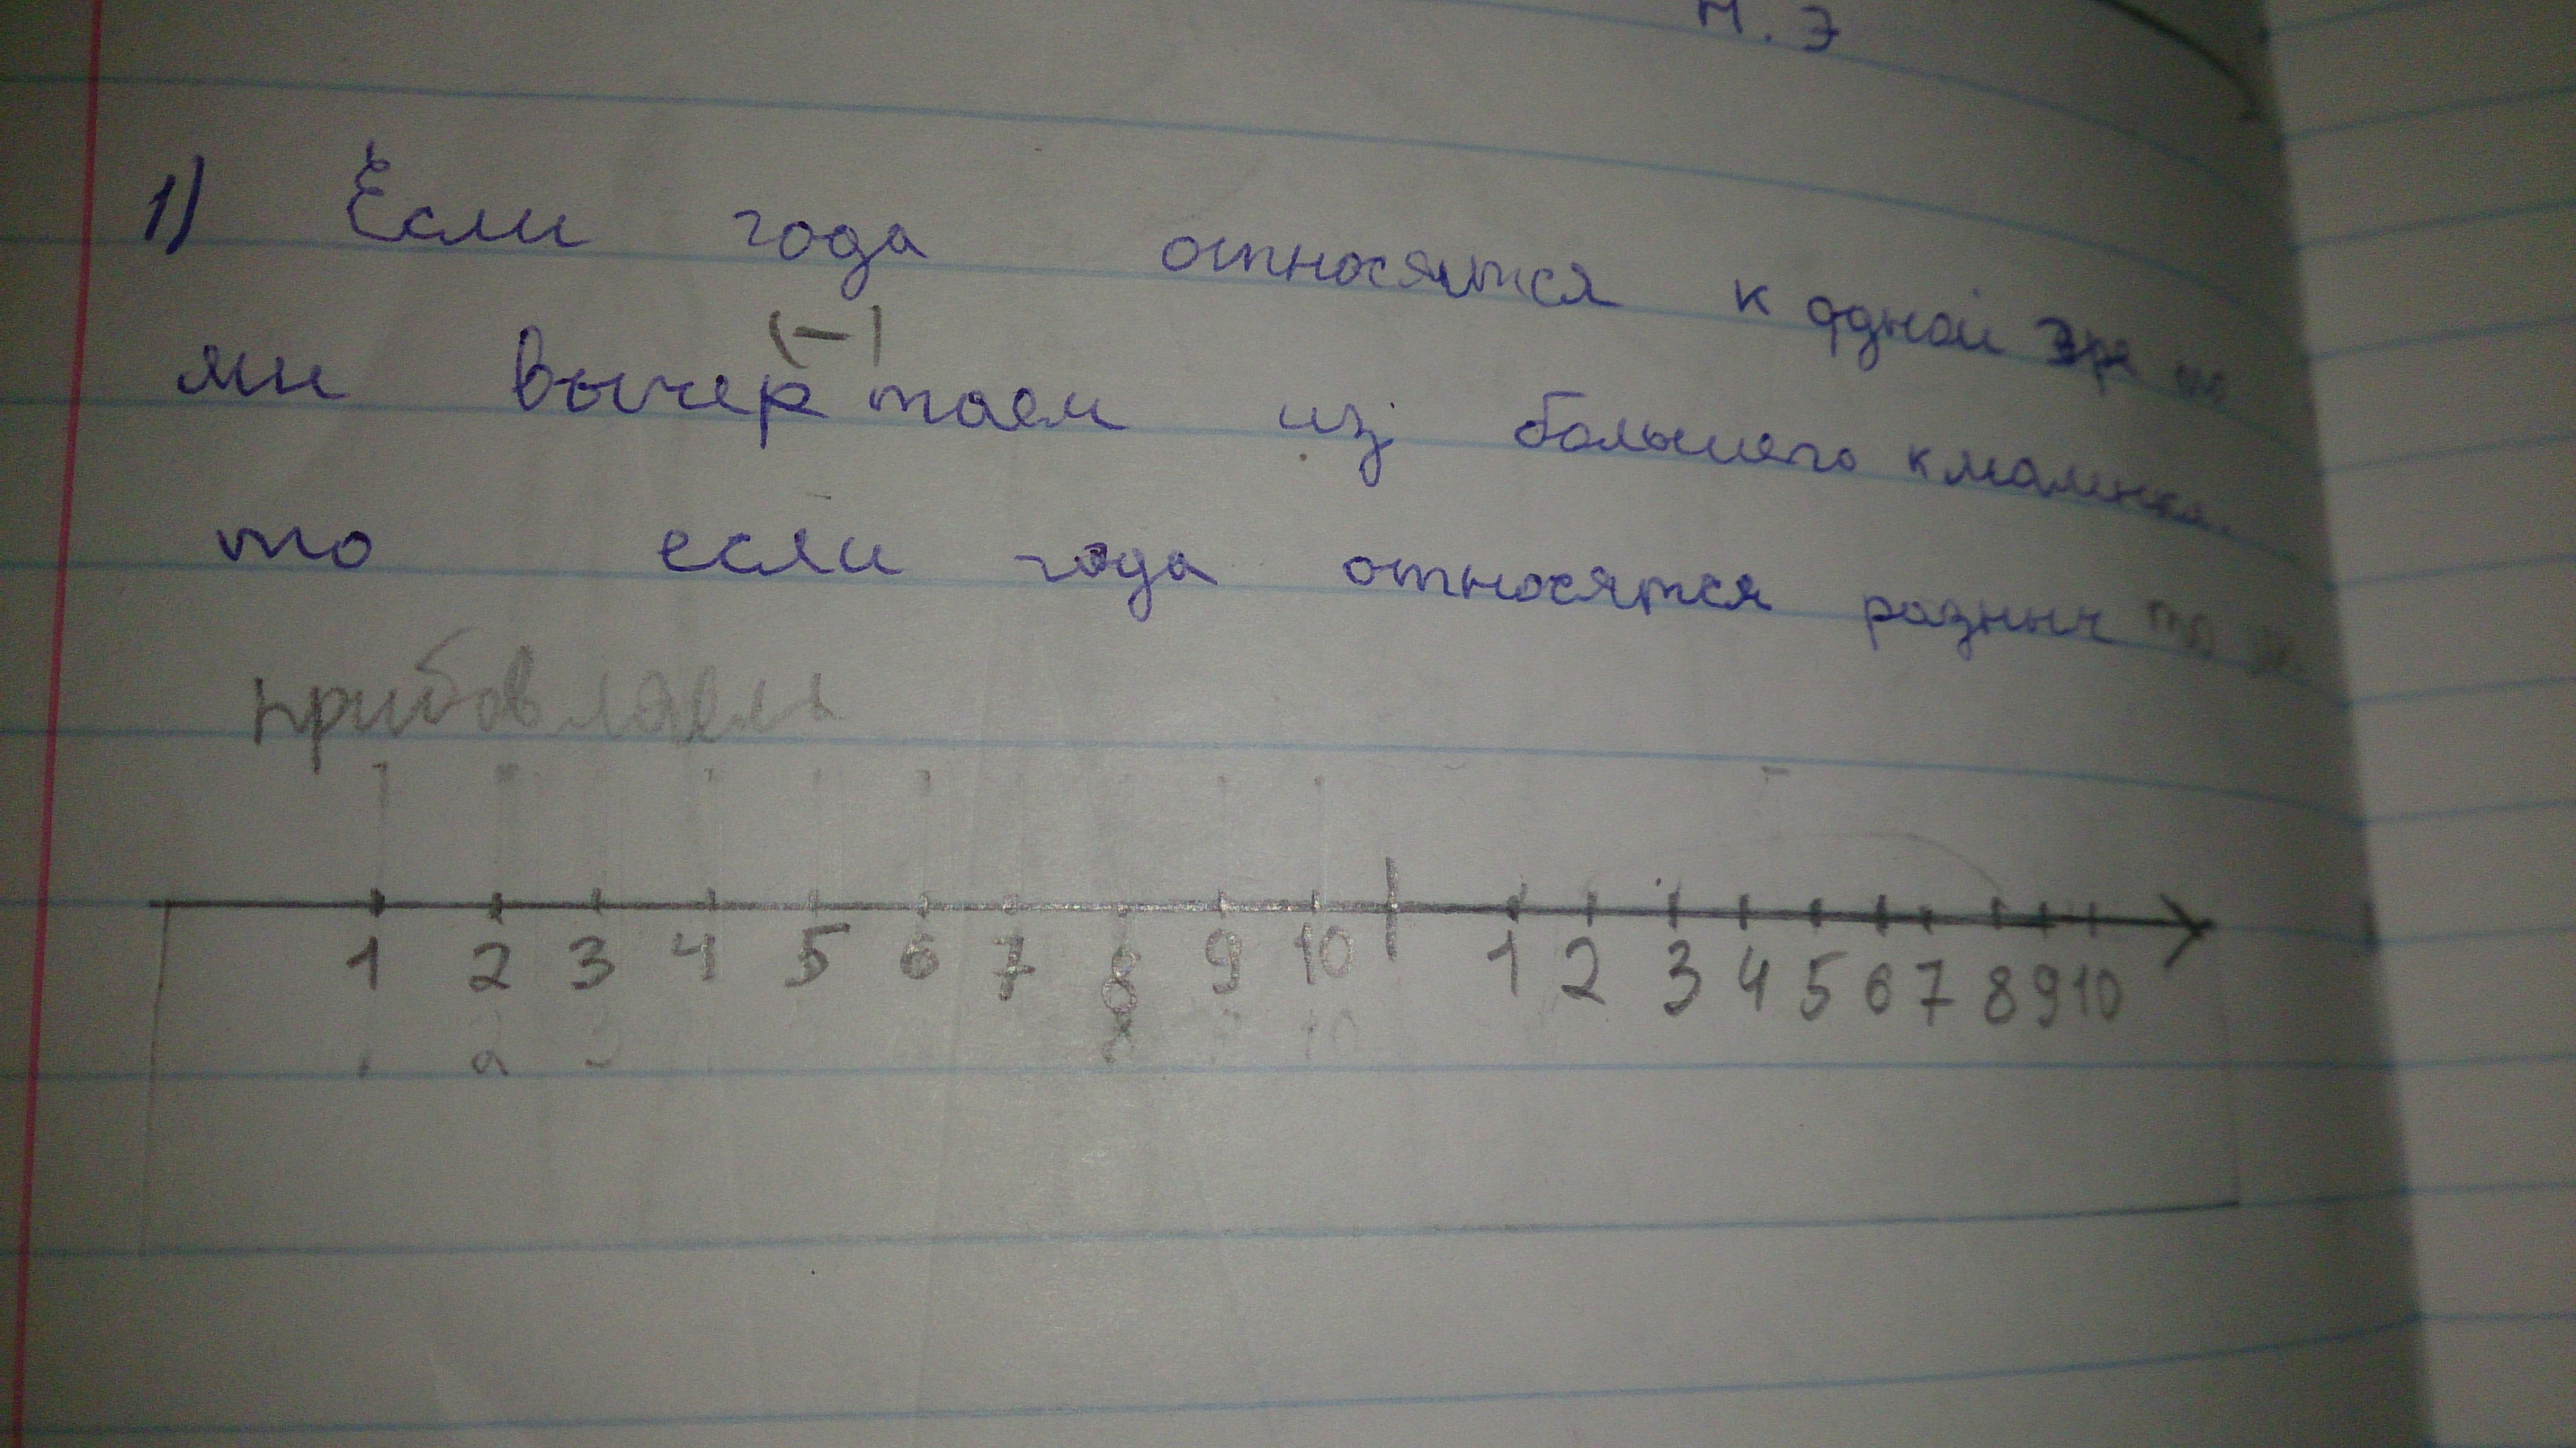 н.э
1) Если года относятся к одной эре то
ми вычер(-)таем из большего к
то если года относятся разных то
прибовляем
1 2 3 4 5 6 7 8 9 10 1 2 3 4 5 6 7 8 9 10
2 3 8 10